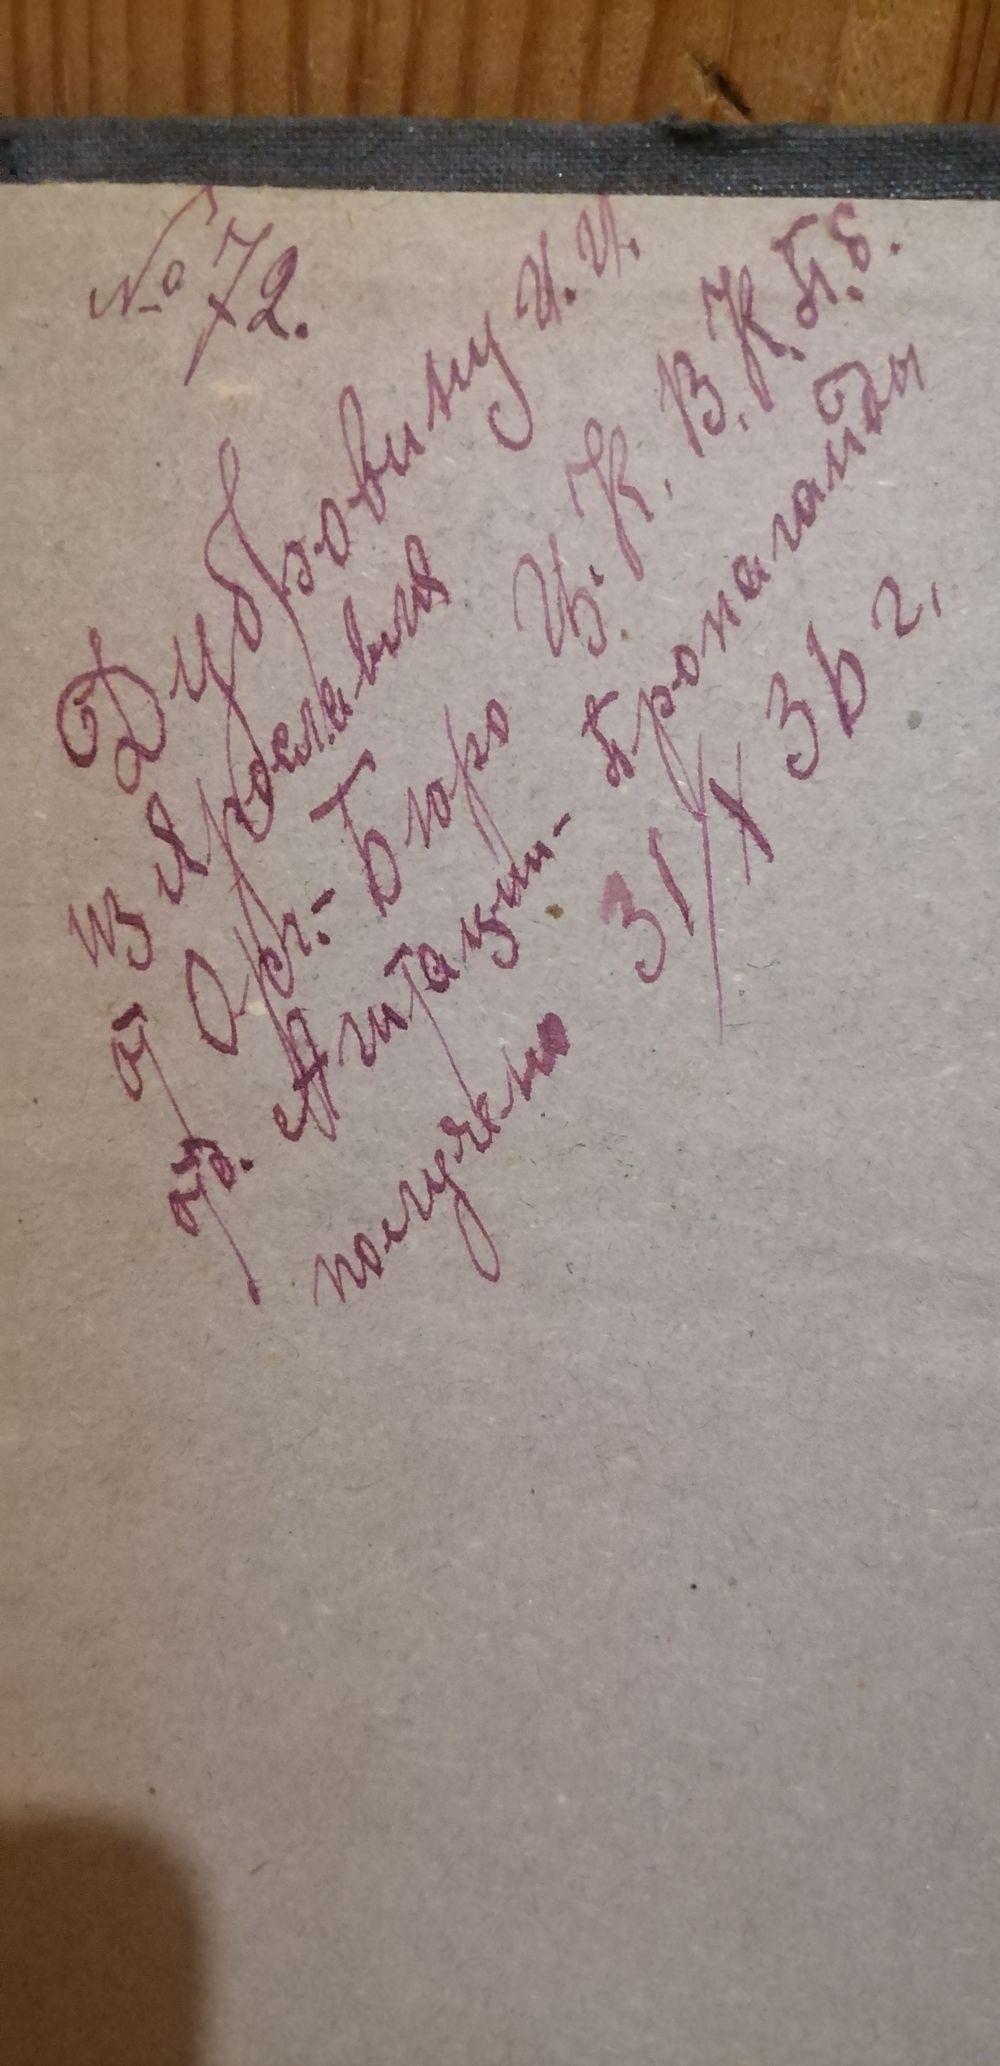 № 72.
Дубровину И. И.
из Ярославля
от Орг.-Бюро Ц. К. В. К. П. б.
отд. Агитации-Пропаганды
получено 31/X 36 г.